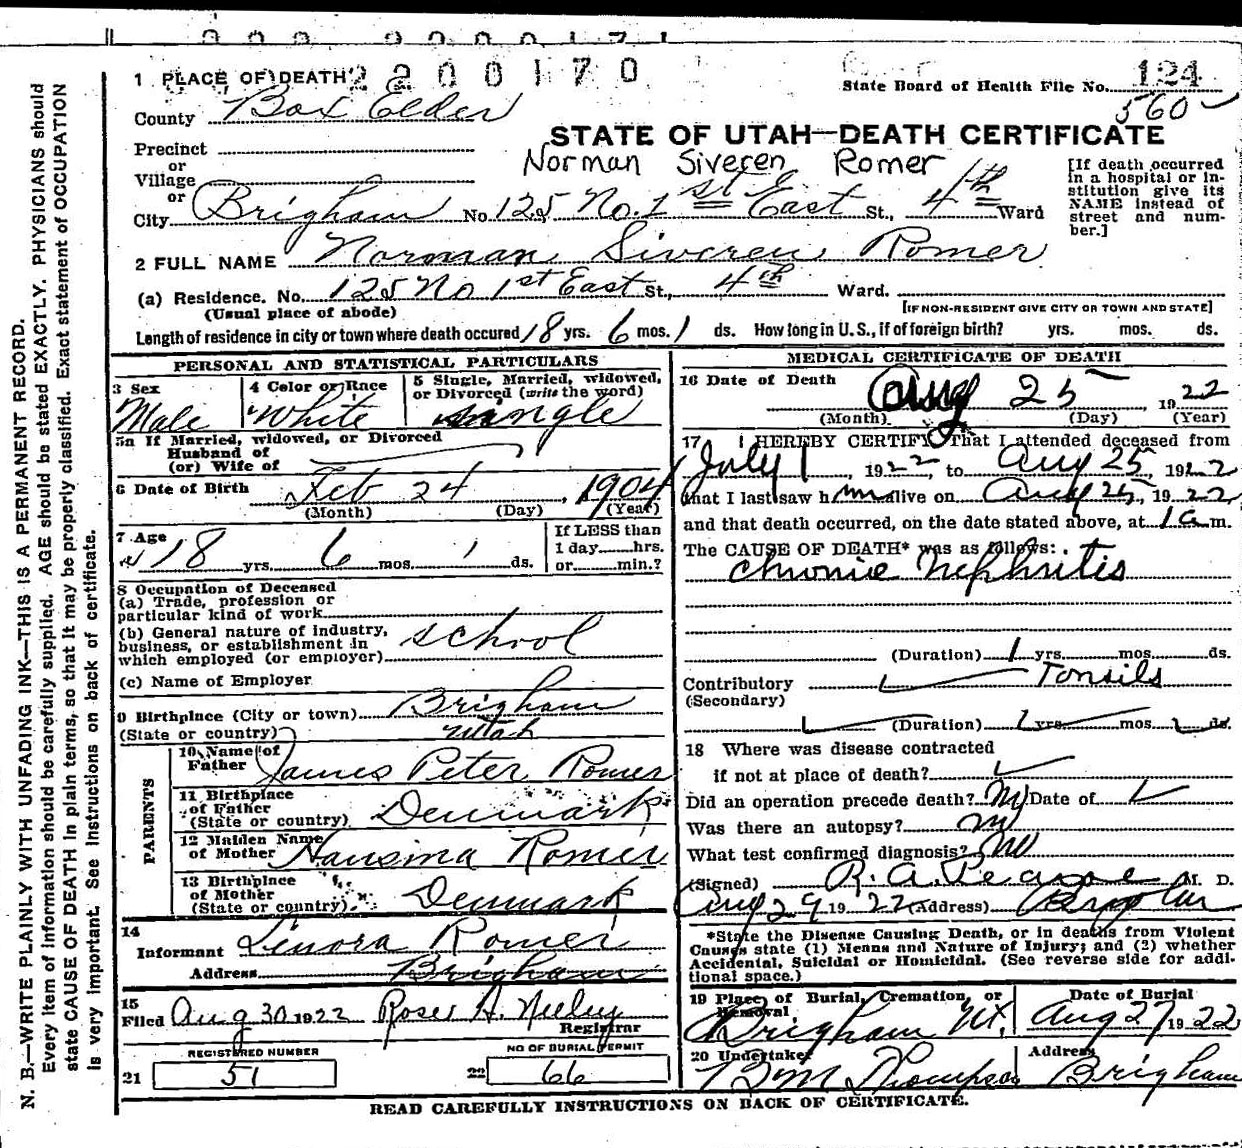 2200170
1 PLACE OF DEATH
State Board of Health File No. 124
County Box Elder
560
STATE OF UTAH—DEATH CERTIFICATE
Precinct
or
Village
or
Norman Siveren Romer
[If death occurred in a hospital or institution give its NAME instead of street and number.]
City Brigham No. 125 No. 1st East St., 4th Ward
2 FULL NAME Norman Siveren Romer
(a) Residence. No. 125 No 1st East St., 4th Ward.
(Usual place of abode) [IF NON-RESIDENT GIVE CITY OR TOWN AND STATE]
Length of residence in city or town where death occured 18 yrs. 6 mos. 1 ds. How long in U. S., if of foreign birth? yrs. mos. ds.
PERSONAL AND STATISTICAL PARTICULARS
3 Sex Male
4 Color or Race White
5 Single, Married, widowed, or Divorced (write the word) single
5a If Married, widowed, or Divorced
Husband of
(or) Wife of
6 Date of Birth Feb 24, 1904
(Month) (Day) (Year)
7 Age 18 yrs. 6 mos. 1 ds.
If LESS than
1 day......hrs.
or......min.?
8 Occupation of Deceased
(a) Trade, profession or
particular kind of work
(b) General nature of industry,
business, or establishment in
which employed (or employer) school
(c) Name of Employer
9 Birthplace (City or town) Brigham
(State or country) Utah
PARENTS
10 Name of Father James Peter Romer
11 Birthplace of Father (State or country) Denmark
12 Maiden Name of Mother Hansina Romer
13 Birthplace of Mother (State or country) Denmark
14
Informant Lenora Romer
Address Brigham
15
Filed Aug 30 1922 Rose H. Neeley
Registrar
REGISTERED NUMBER
21 51
NO OF BURIAL PERMIT
22 66
MEDICAL CERTIFICATE OF DEATH
16 Date of Death Aug 25, 1922
(Month) (Day) (Year)
17 I HEREBY CERTIFY That I attended deceased from
July 1, 1922 to Aug 25, 1922
that I last saw him alive on Aug 25, 1922
and that death occurred, on the date stated above, at 1 a m.
The CAUSE OF DEATH* was as follows:
Chronic Nephritis
(Duration) 1 yrs. mos. ds.
Contributory Tonsils
(Secondary)
(Duration) yrs. mos. ds.
18 Where was disease contracted
if not at place of death?
Did an operation precede death? no Date of
Was there an autopsy? no
What test confirmed diagnosis? no
(Signed) R. A. Pearse M. D.
Aug 29 1922 (Address) Brigham
*State the Disease Causing Death, or in deaths from Violent
Causes state (1) Means and Nature of Injury; and (2) whether
Accidental, Suicidal or Homicidal. (See reverse side for addi-
tional space.)
19 Place of Burial, Cremation, or Removal Brigham Ut.
Date of Burial Aug 27 1922
20 Undertaker B M Thompson
Address Brigham
READ CAREFULLY INSTRUCTIONS ON BACK OF CERTIFICATE.
N. B.—WRITE PLAINLY WITH UNFADING INK—THIS IS A PERMANENT RECORD.
Every item of information should be carefully supplied. AGE should be stated EXACTLY. PHYSICIANS should
state CAUSE OF DEATH in plain terms, so that it may be properly classified. Exact statement of OCCUPATION
is very important. See instructions on back of certificate.